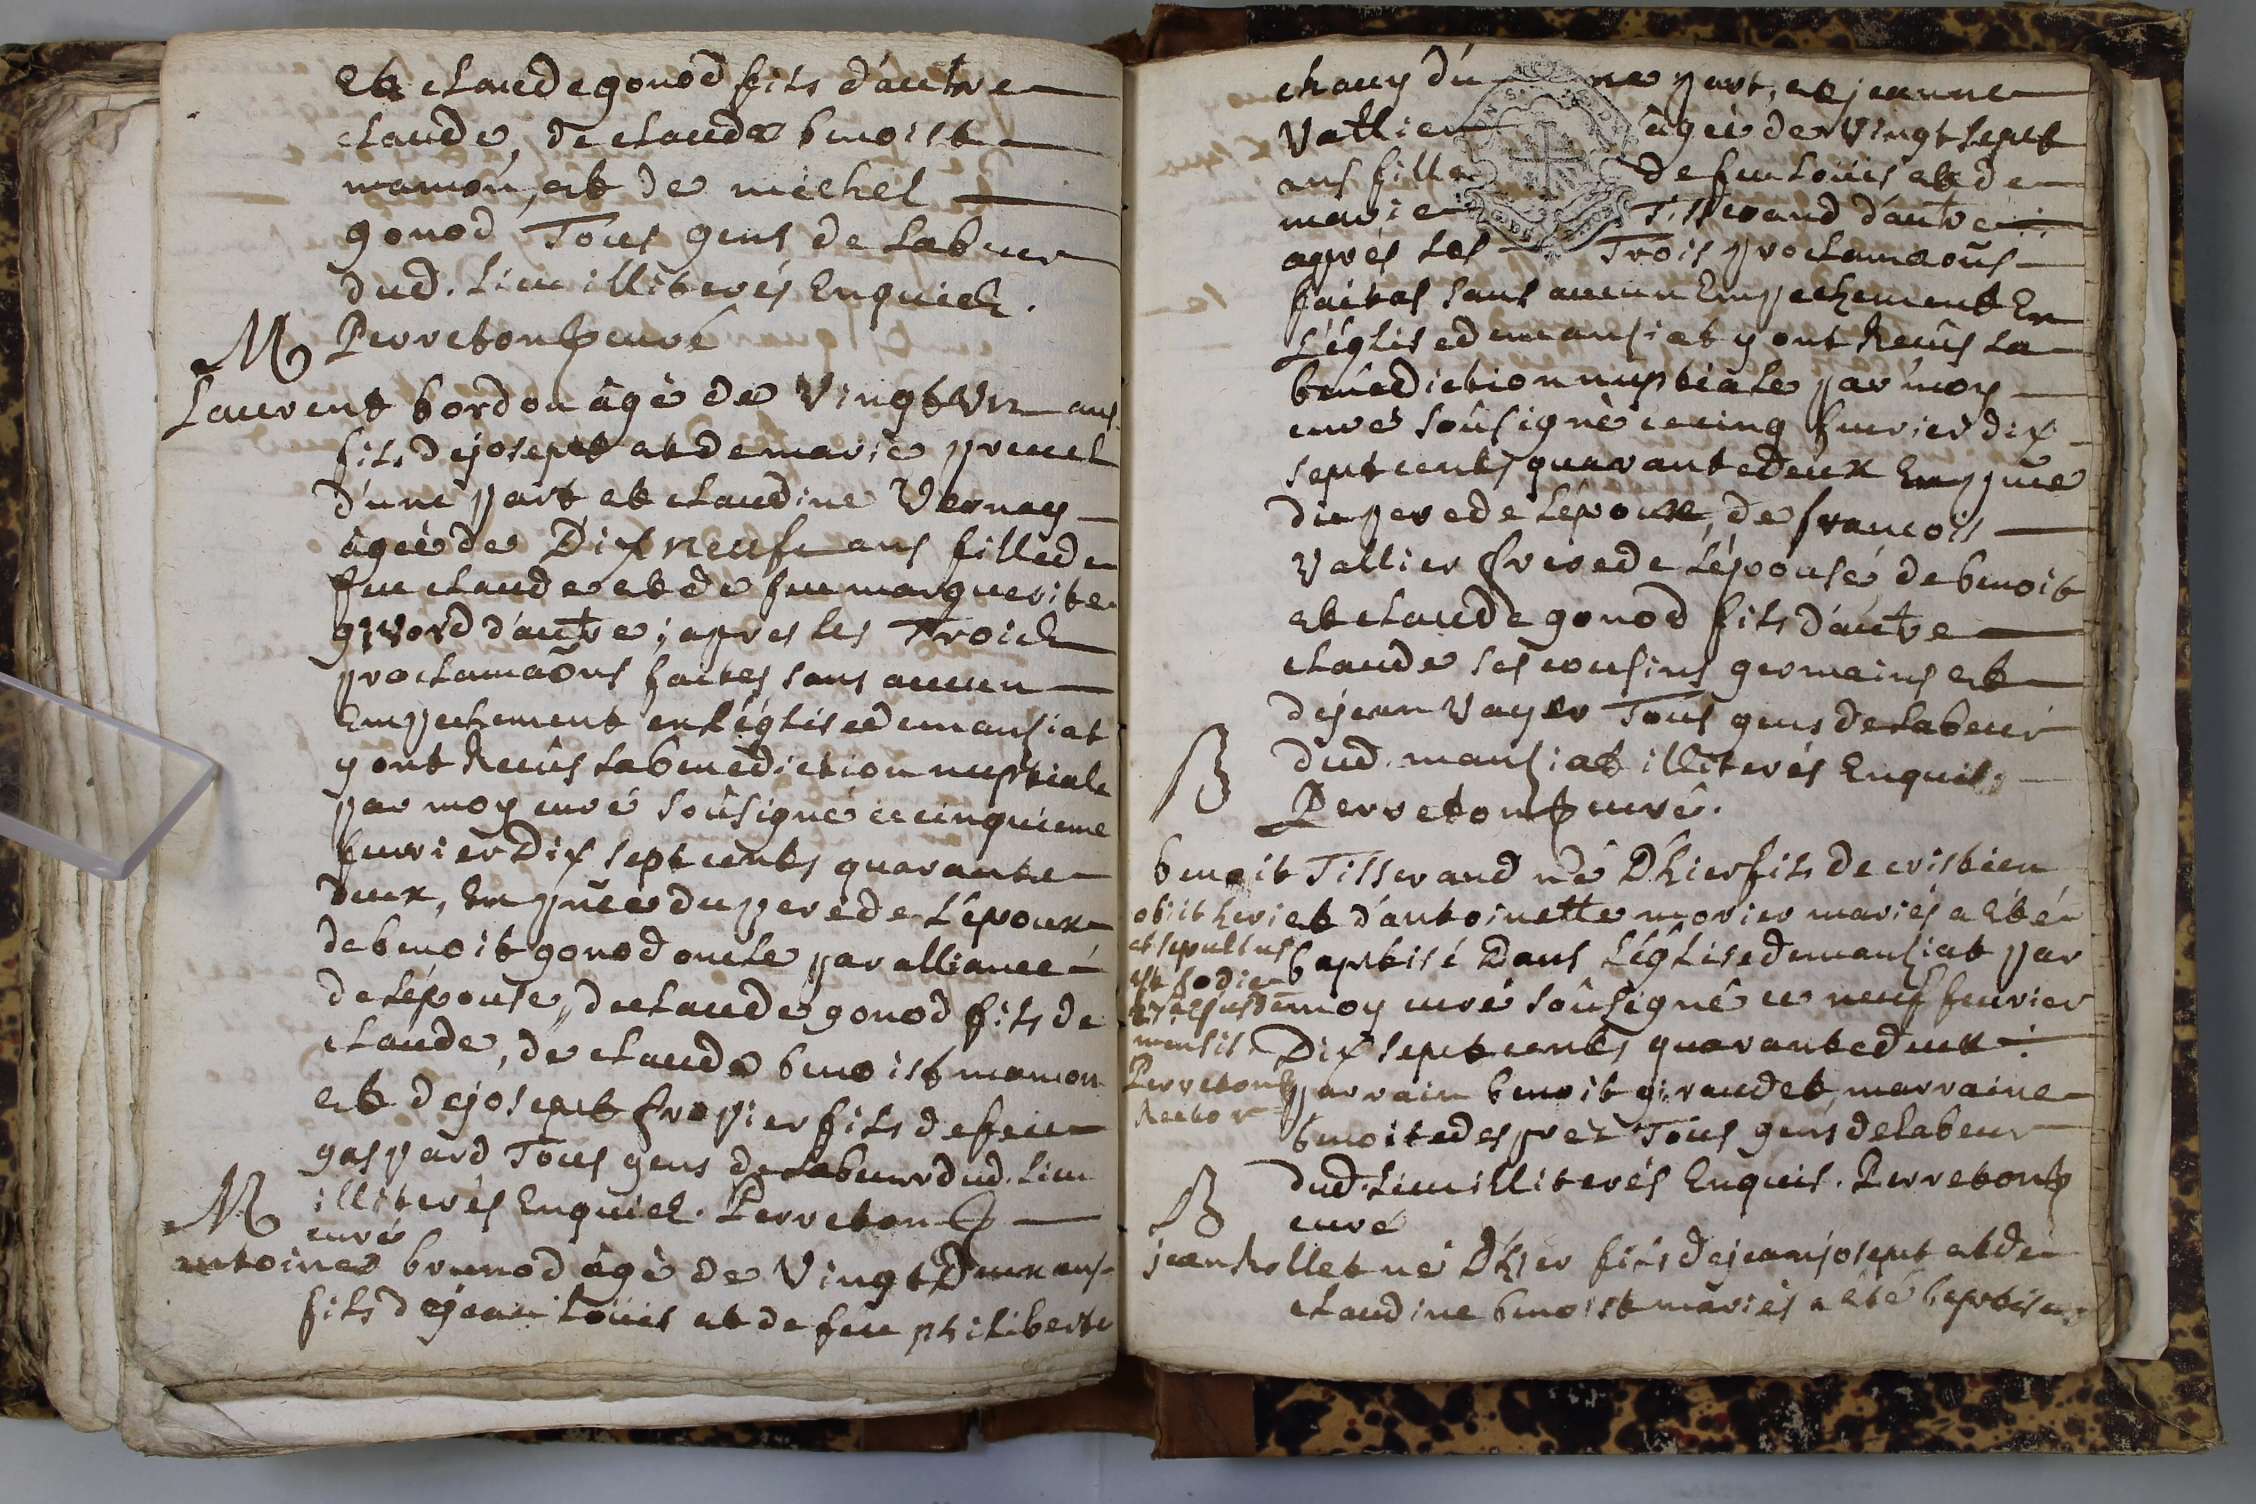 et claude gonod fils d'autre
claude, de claude benoist
mamon, et de michel
gonod Tous gens de labeur
dud. lieu illiterés Enquich.
M Perreton curé
Laurent bordon âgé de Vingt Un ans
fils de josept et de marie
d'une part et claudine Vernay
âgeé de Dix neufe ans fille de
feu claude et de feu marguerite
d'autre; apres les Troich
proclamaõns faites sans aucun
Empechement en l'église de mansiat
y ont Receus la benediction nuptiale
par moy curé soûsigné ce cinquieme
feuvrier Dix sept cents quarante
deux, En pñce du pere de L'epoux
de benoit gonod oncle par alliance
de L'épouse, de claude gonod fils de
claude, de claude benoist mamon
et de josept fropier fils de feu
gaspard Tous gens de labeur dud. lieu
illiterés Enquich. Perreton
M curé
antoine brunod âgé de Vingt Deux ans
fils de jean Louis et de feu philiberte
chany d'une part, et jeanne
Vallier âgeé de Vingt sept
ans fille de feu Loüis et de
marie Tisserand d'autre
aprés les Trois proclamaoñs
faites sans aucun Empechement En
L'église de mansiat y ont Receûs la
benediction nuptiale par moy
curé soûsigné ce cinq feuvrier dix
sept cents quarante deux En pñce
du pere de L'epoux, de francois
Vallier frere de L'épousé de benoit
et claude gonod fils d'autre
claude ses cousins germains et
de jean Vayer Tous gens de labeur
dud. mansiat illiterés Enquis
B Perreton curé.
benoit Tisserand né D'hier fils de cristien
obiit heri et d'antoinette morier mariés a Eté
et sepultus baptisé Dans L'églisé de mansiat par
est hodie moy curé soûsigné ce neuf feuvrier
ejusdem
mensis. Dix sept cents quarante deux
Perreton parrain benoit giraudet, marraine
Rector
benoite desprez Tous gens de labeur
dud. lieu illiterés Enquis. Perreton
B curé
jean Rollet né D'hier fils de jean josept et de
claudine benoist mariés a été baptisé